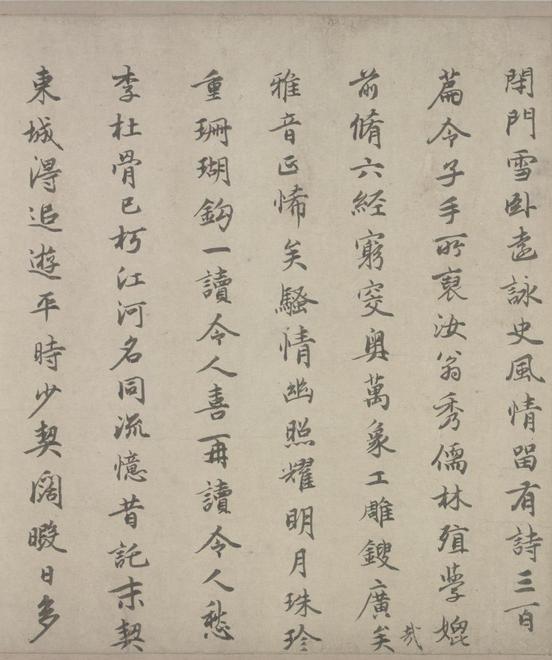 閉門雪卧袁詠史風情留有詩三百
篇令子手所裒汝翁秀儒林殖學媲
前脩六經窮窔奧萬象工雕鎪廣矣哉
雅音正悕矣騷情幽照耀明月珠珍
重珊瑚鈎一讀令人喜再讀令人愁
李杜骨已朽江河名同流憶昔託末契
東城得追遊平時少契闊暇日多